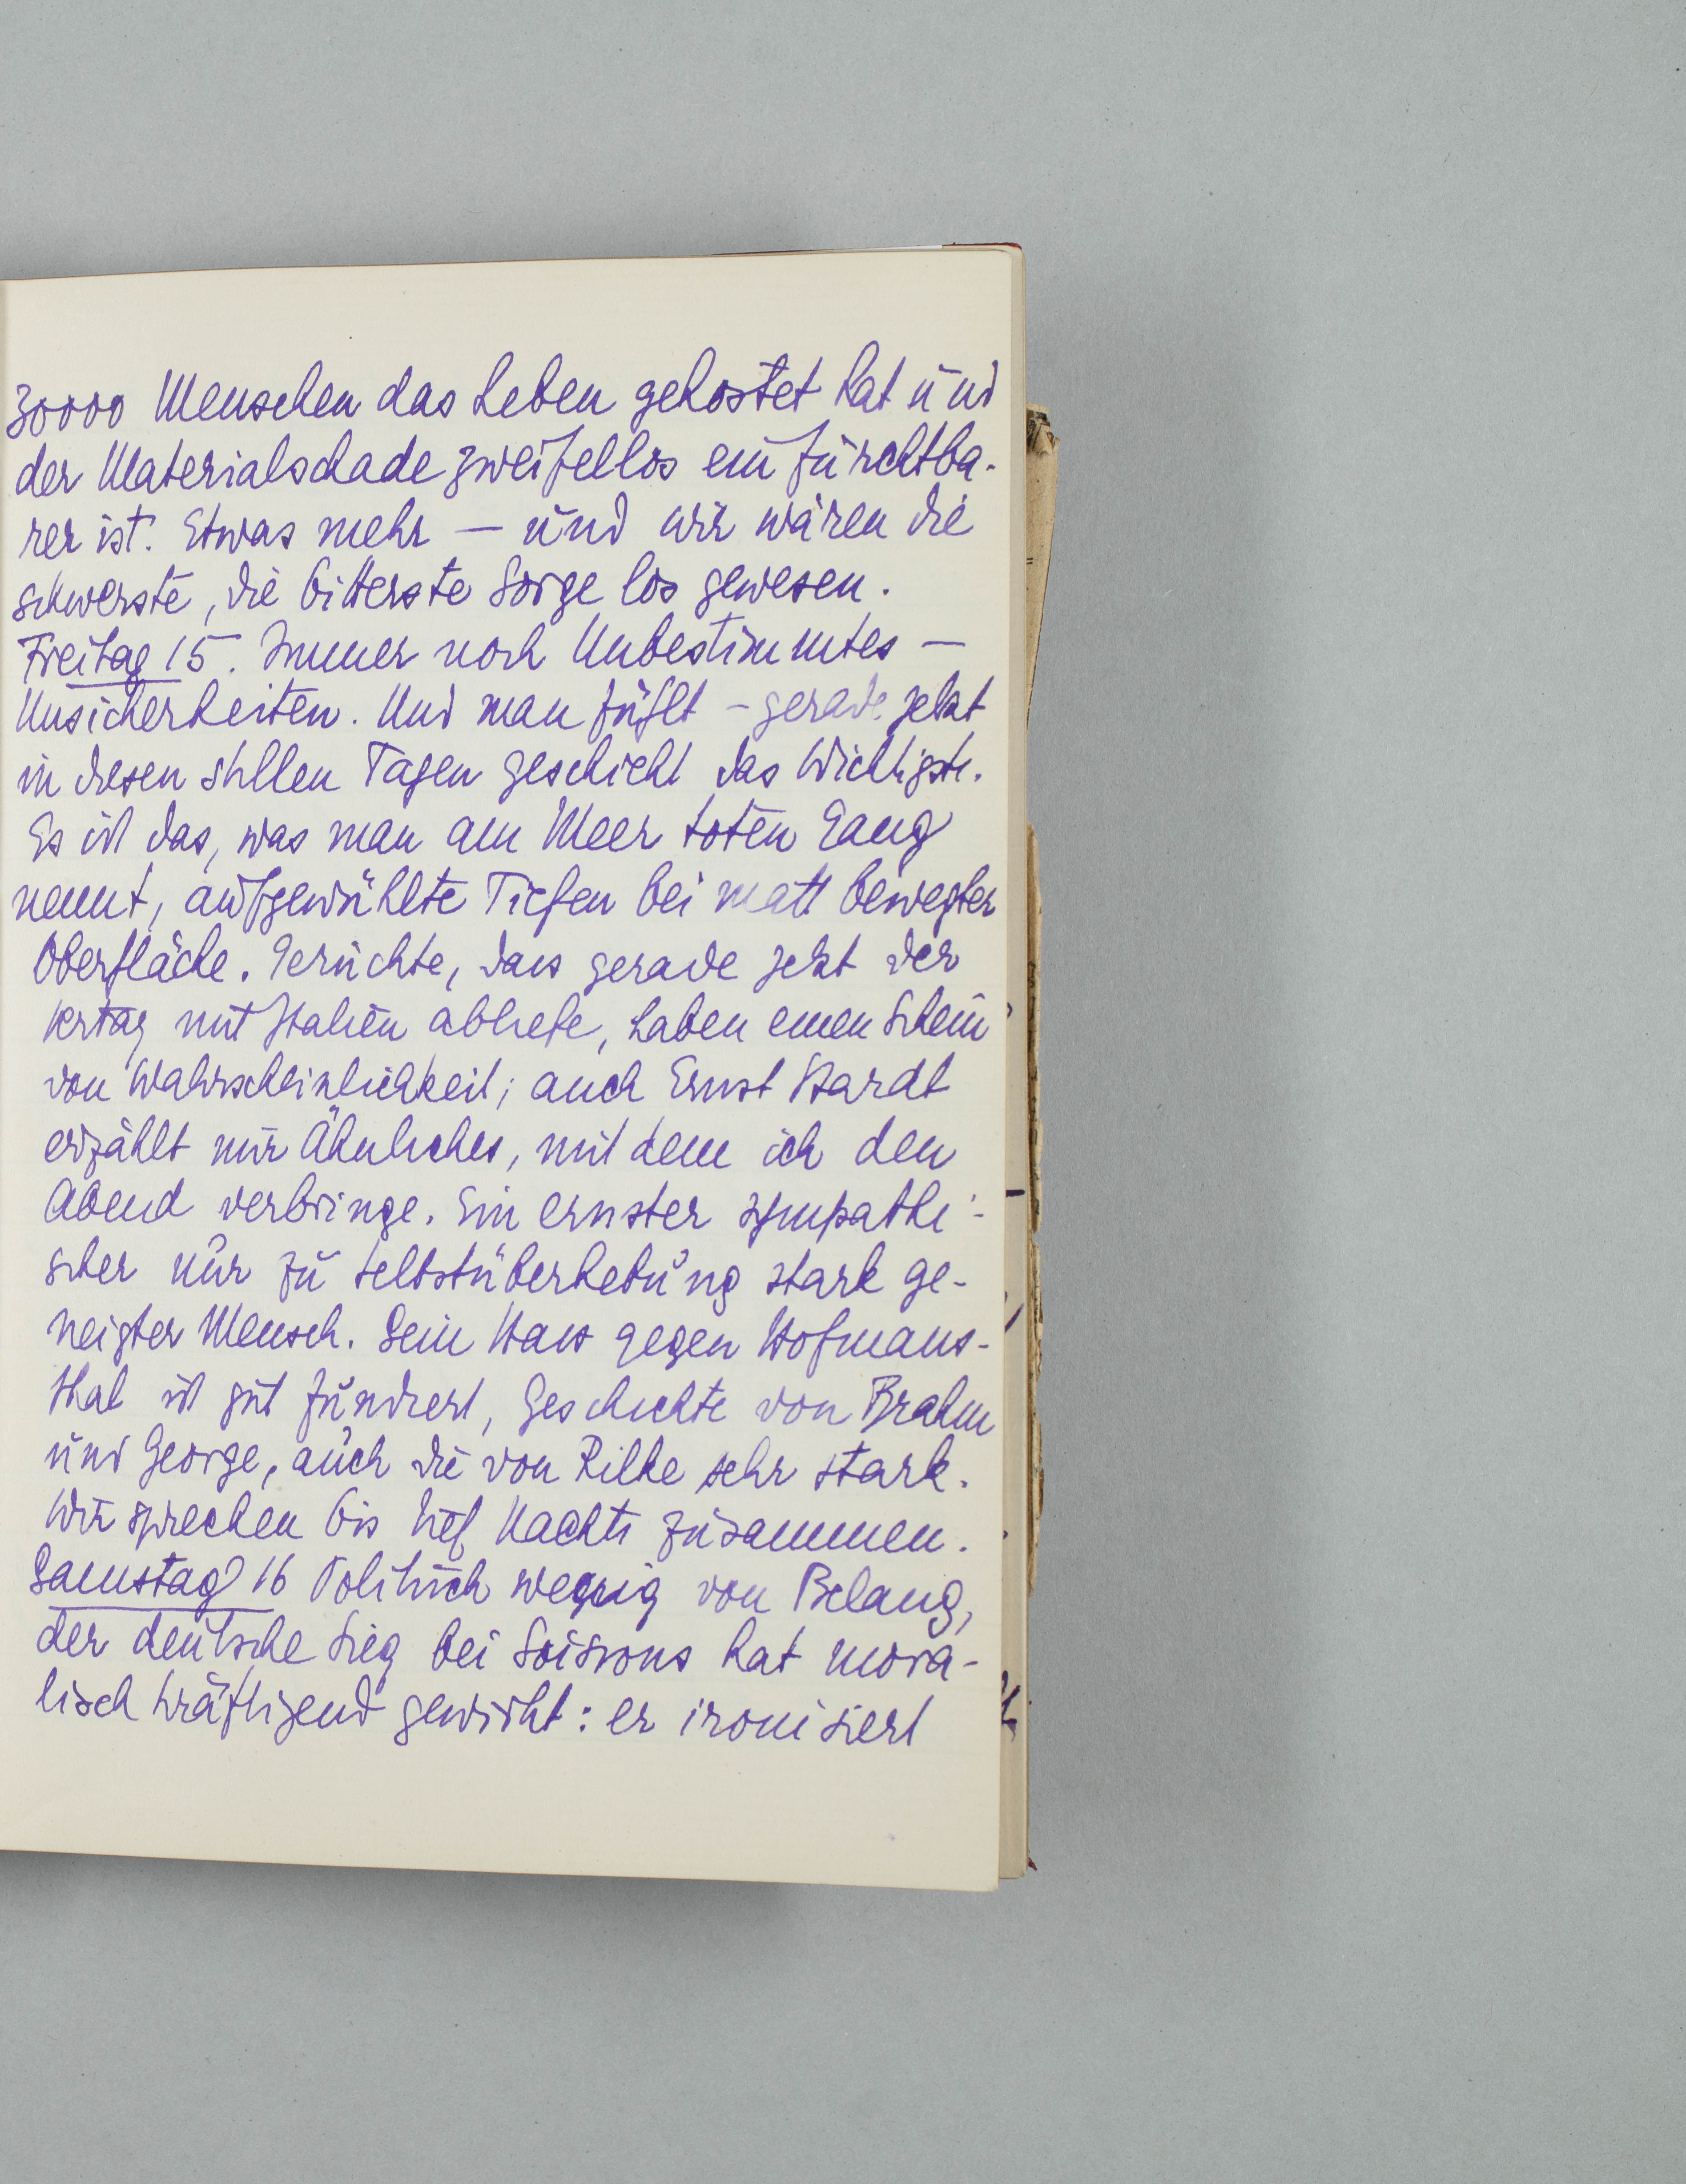 30000 Menschen das Leben gekostet hat und
der Materialschade zweifellos ein furchtba-
rer ist. Etwas mehr — und wir wären die
schwerste, die bitterste Sorge los gewesen.
Freitag 15. Immer noch Unbestimmtes —
Unsicherheiten. Und man fühlt – gerade jetzt
in diesen stillen Tagen geschieht das Wichtigste.
Es ist das, was man am Meer toten Gang
nennt, aufgewühlte Tiefen bei matt bewegter
Oberfläche. Gerüchte, dass gerade jetzt der
Vertrag mit Italien abliefe, haben einen Schein
von Wahrscheinlichkeit; auch Ernst Hardt
erzählt mir Ähnliches, mit dem ich den
Abend verbringe. Ein ernster sympathi-
scher nur zu Selbstüberhebung stark ge-
neigter Mensch. Sein Hass gegen Hofmans-
thal ist gut fundiert, Geschichte von Brahm
und George, auch die von Rilke sehr stark.
Wir sprechen bis tief Nachts zusammen.
Samstag 16 Politisch wenig von Belang,
der deutsche Sieg bei Soissons hat mora-
lisch kräftigend gewirkt: er ironisiert